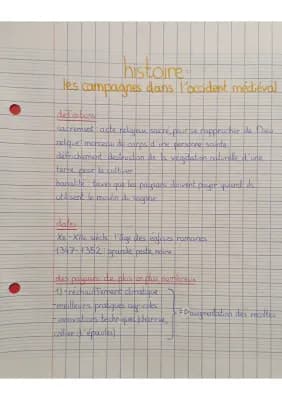 histoire
les campagnes dans l'occident médiéval
définitions
sacrement : acte religieux sacré, pour se rapprocher de Dieu
relique : morceau de corps d'une personne sainte
défrichement : destruction de la végétation naturelle d'une
terre pour la cultiver
banalité : taxes que les paysans doivent payer quand ils
utilisent le moulin du seigneur
dates
Xe - XIIe siècle : l'âge des églises romanes
1347-1352 : grande peste noire
des paysans de plus en plus nombreux
1) - réchauffement climatique
- meilleures pratiques agricoles
- innovations techniques (charrue, => augmentation des récoltes
collier d'épaules)